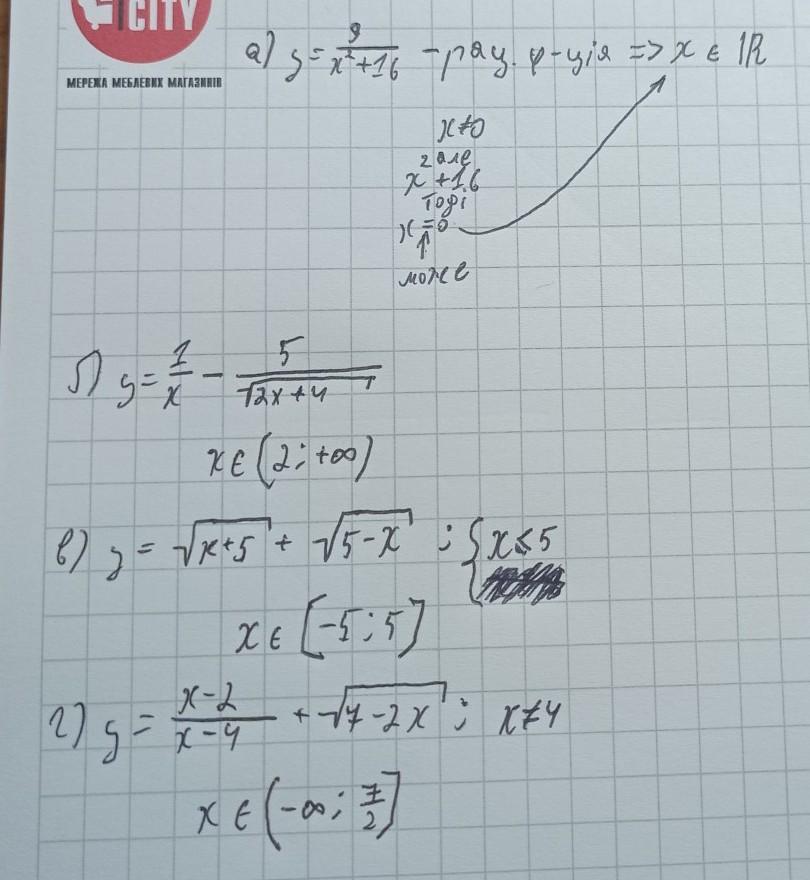 CITY
МЕРЕЖА МЕБЛЕВИХ МАГАЗИНІВ
а) y = 9/(x²+16) – рац. ф-ція => x ∈ ℝ
x≠0
але
x²+16
тоді
x=0
↑
може
б) y = 1/x − 5/√(2x+4)
x ∈ (2; +∞)
в) y = √(x+5) + √(5−x) ; { x ≤ 5
x ∈ [−5; 5]
г) y = (x−2)/(x−4) + √(7−2x) ; x≠4
x ∈ (−∞; 7/2]